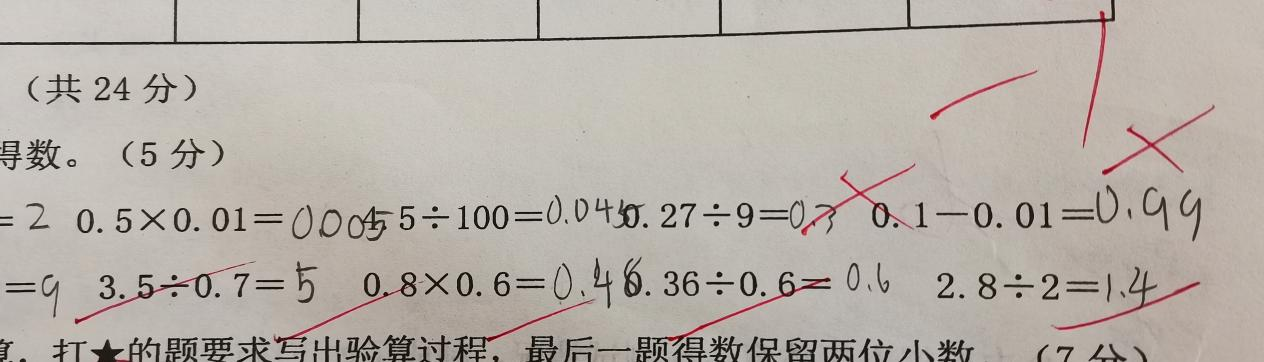 （共 24 分）
得数。（5 分）
=2 0.5×0.01=0.005 4.5÷100=0.045 0.27÷9=0.3 0.1－0.01=0.99
=9 3.5÷0.7=5 0.8×0.6=0.48 0.36÷0.6=0.6 2.8÷2=1.4
算，打★的题要求写出验算过程，最后一题得数保留两位小数。（7 分）